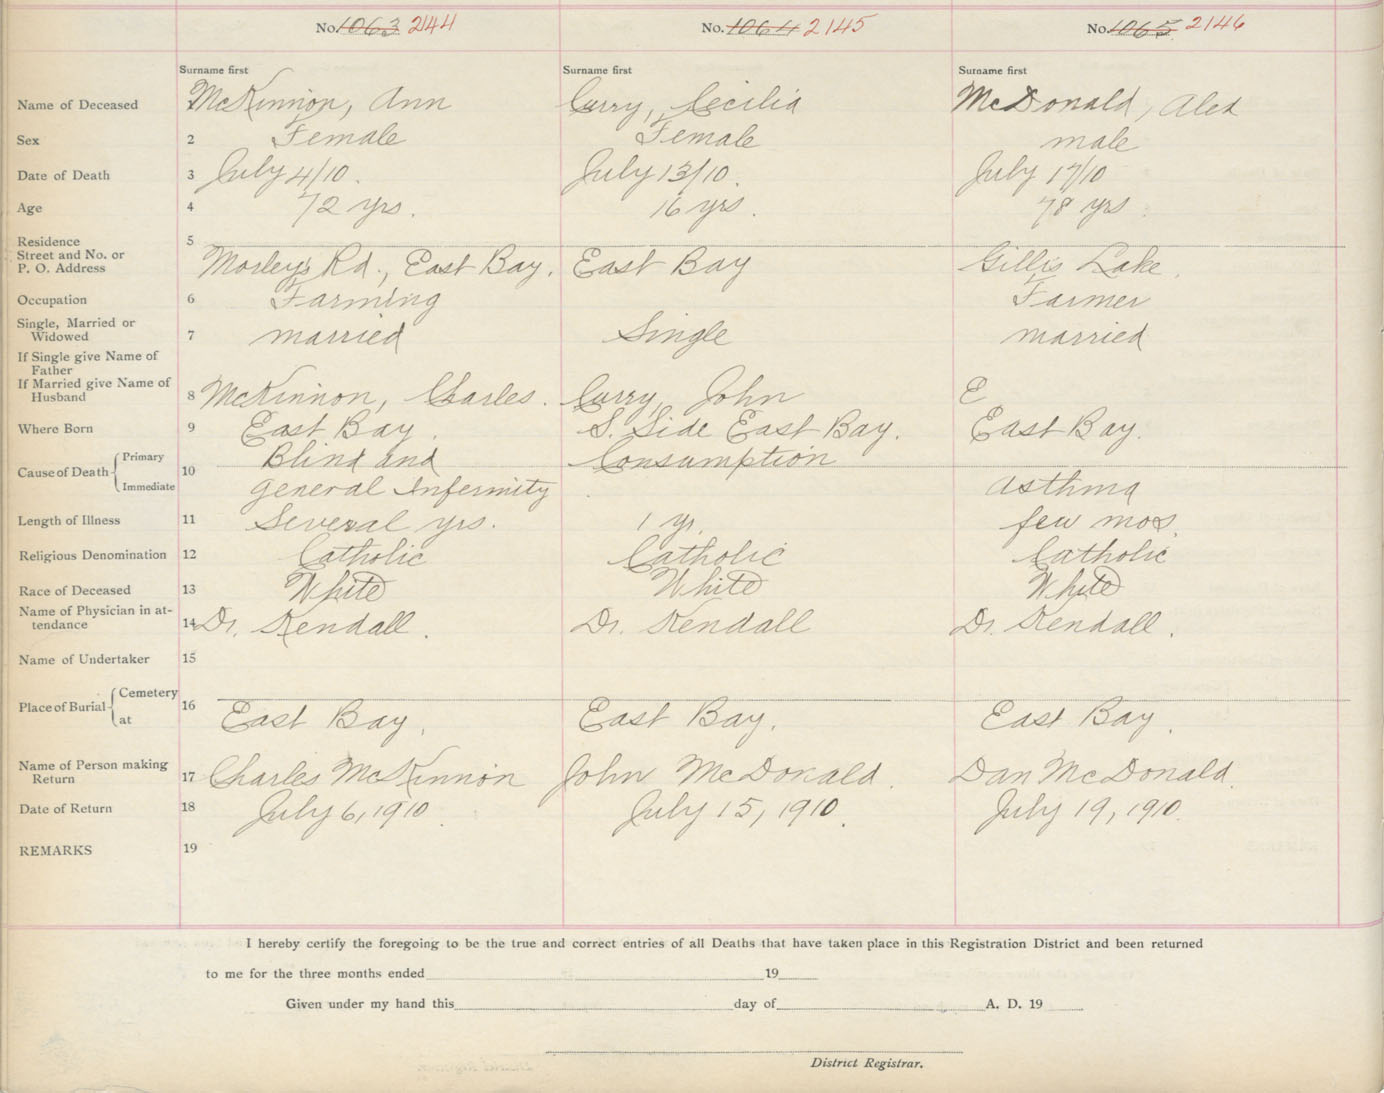 No. 1063 2144 No. 1064 2145 No. 1065 2146
Surname first Surname first Surname first
Name of Deceased McKinnon, Ann Curry, Cecilia McDonald, Alex
Sex 2 Female Female male
Date of Death 3 July 4/10. July 13/10. July 17/10
Age 4 72 yrs. 16 yrs. 78 yrs.
Residence 5
Street and No. or
P. O. Address Morley's Rd., East Bay. East Bay Gillis Lake.
Occupation 6 Farming Farmer
Single, Married or
Widowed 7 married Single married
If Single give Name of
Father
If Married give Name of
Husband 8 McKinnon, Charles. Curry, John E
Where Born 9 East Bay. S. Side East Bay. East Bay.
Cause of Death Primary Blind and Consumption
10
Immediate general Infermity asthma
Length of Illness 11 Several yrs. 1 yr. few mos.
Religious Denomination 12 Catholic Catholic Catholic
Race of Deceased 13 White White White
Name of Physician in at-
tendance 14 Dr. Kendall. Dr. Kendall Dr. Kendall.
Name of Undertaker 15
Place of Burial Cemetery 16
at East Bay. East Bay. East Bay.
Name of Person making
Return 17 Charles McKinnon John McDonald. Dan McDonald.
Date of Return 18 July 6, 1910. July 15, 1910. July 19, 1910.
REMARKS 19
I hereby certify the foregoing to be the true and correct entries of all Deaths that have taken place in this Registration District and been returned
to me for the three months ended 19
Given under my hand this day of A. D. 19
District Registrar.